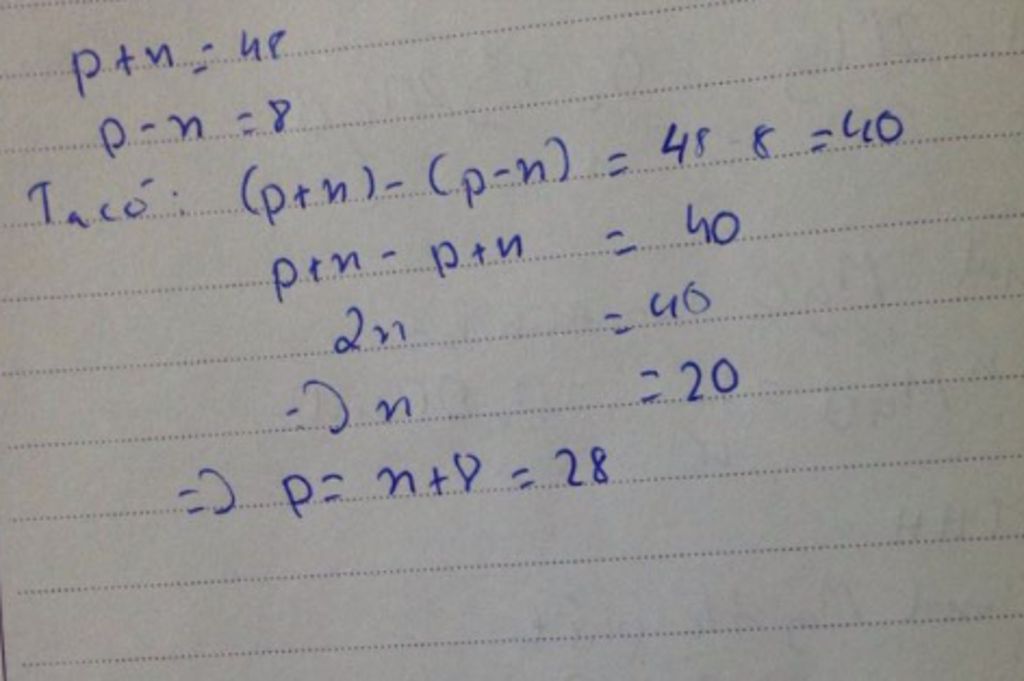 p+n = 48
p-n = 8
Ta có: (p+n) - (p-n) = 48 8 = 40
p+n - p+n = 40
2n = 40
=> n = 20
=> p = n+8 = 28